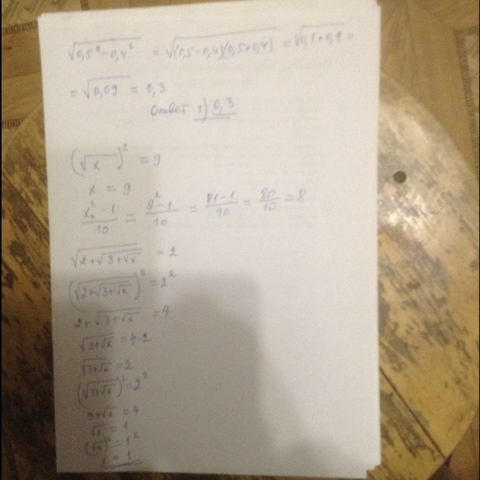 √(0,5² - 0,4²) = √((0,5-0,4)(0,5+0,4)) = √(0,1+0,9) =
= √0,09 = 0,3
Ответ 1) 0,3
(√x)² = 9
x = 9
(x₀² - 1)/10 = (9² - 1)/10 = (81-1)/10 = 80/10 = 8
√(2+√(3+√x)) = 2
(√(2+√(3+√x)))² = 2²
2+√(3+√x) = 4
√(3+√x) = 4-2
√(3+√x) = 2
(√(3+√x))² = 2²
3+√x = 4
√x = 1
(√x)² = 1²
x = 1